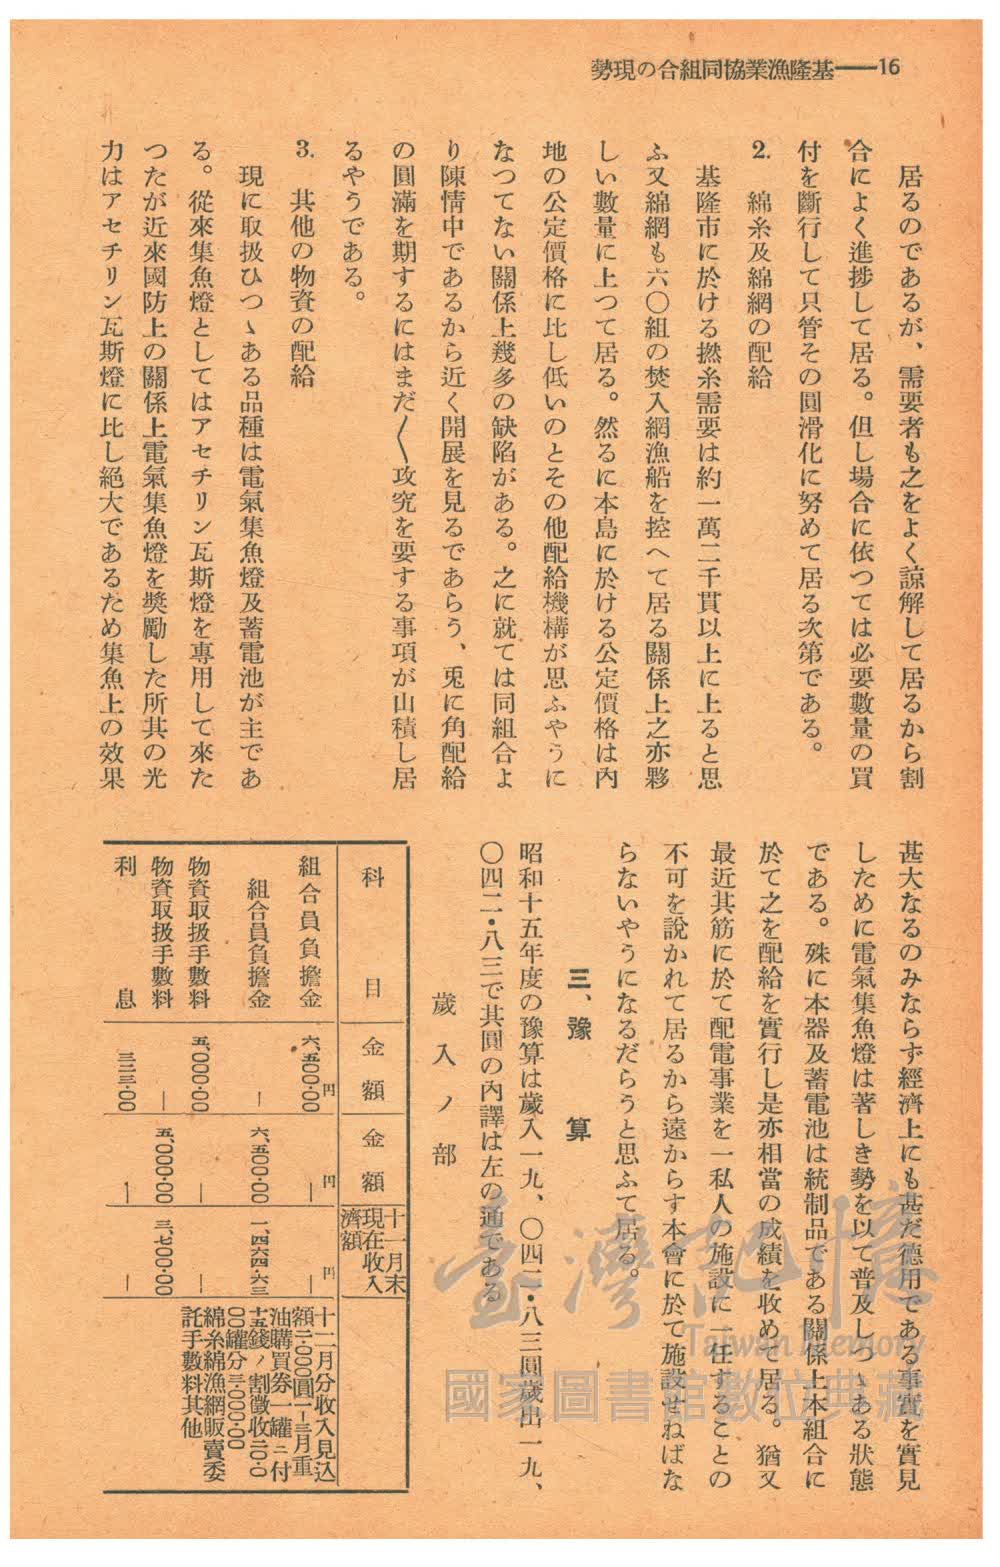 16──基隆漁業協同組合の現勢
居るのであるが、需要者も之をよく諒解して居るから割
合によく進捗して居る。但し場合に依つては必要數量の買
付を斷行して只管その圓滑化に努めて居る次第である。
2. 綿糸及綿網の配給
基隆市に於ける撚糸需要は約一萬二千貫以上に上ると思
ふ又綿網も六〇組の焚入網漁船を控へて居る關係上之亦夥
しい數量に上つて居る。然るに本島に於ける公定價格は內
地の公定價格に比し低いのとその他配給機構が思ふやうに
なつてない關係上幾多の缺陷がある。之に就ては同組合よ
り陳情中であるから近く開展を見るであらう、兎に角配給
の圓滿を期するにはまだ〱攻究を要する事項が山積し居
るやうである。
3. 其他の物資の配給
現に取扱ひつゝある品種は電氣集魚燈及蓄電池が主であ
る。從來集魚燈としてはアセチリン瓦斯燈を專用して來た
つたが近來國防上の關係上電氣集魚燈を獎勵した所其の光
力はアセチリン瓦斯燈に比し絕大であるため集魚上の效果
甚大なるのみならず經濟上にも甚だ德用である事實を實見
しために電氣集魚燈は著しき勢を以て普及しつゝある狀態
である。殊に本器及蓄電池は統制品である關係上本組合に
於て之を配給を實行し是亦相當の成績を收めて居る。猶又
最近其筋に於て配電事業を一私人の施設に一任することの
不可を說かれて居るから遠からす本會に於て施設せねばな
らないやうになるだらうと思ふて居る。
三、豫算
昭和十五年度の豫算は歲入一九、〇四二・八三圓歲出一九、
〇四二・八三で其圓の內譯は左の通である
歲入ノ部
科目 金額 金額 十一月末現在收入濟額
組合員負擔金 六、五〇〇・〇〇円 ─円 ─円
組合員負擔金 ─ 六、五〇〇・〇〇 一、四六四・六三
物資取扱手數料 五、〇〇〇・〇〇 ─ ─
物資取扱手數料 ─ 五、〇〇〇・〇〇 三、七〇〇・〇〇
利息 三二三・〇〇 ─ ─
十二月分收入見込
額二・〇〇〇圓一─三月重
油購買券一罐ニ付
十五錢ノ割徵收二〇・〇
〇〇罐分三・〇〇〇・〇〇
綿糸綿漁網販賣委
託手數料其他
臺灣記憶
Taiwan Memory
國家圖書館數位典藏